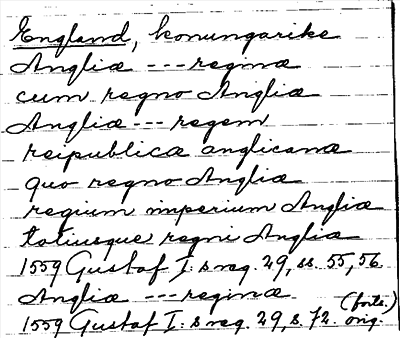 England, konungarike
Angliæ --- reginæ
cum regno Angliæ
Angliæ --- regem
reipublicæ anglicanæ
quo regno Angliæ
regium imperium Angliæ
totiusque regni Angliæ
1559 Gustaf I:s reg. 29, ss. 55, 56.
Angliæ --- reginæ (forts.)
1559 Gustaf I:s reg. 29, s. 72. orig.